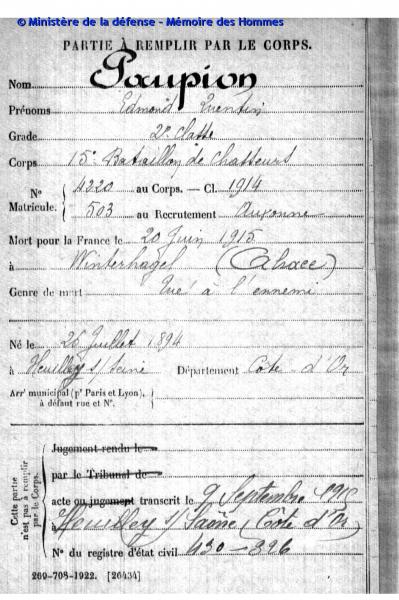 © Ministère de la défense - Mémoire des Hommes
PARTIE À REMPLIR PAR LE CORPS.
Nom Paupion
Prénoms Edmond Quentin
Grade 2e classe
Corps 15e Bataillon de Chasseurs
No Matricule. { 4220 au Corps. — Cl. 1914
503 au Recrutement Auxonne
Mort pour la France le 20 Juin 1915
à Winterhagel (Alsace)
Genre de mort Tué à l'ennemi
Né le 26 Juillet 1894
à Heuilley s/ Saône Département Côte-d'Or
Arrt municipal (pr Paris et Lyon), à défaut rue et No.
Cette partie n'est pas à remplir par le Corps.
Jugement rendu le
par le Tribunal de
acte ou jugement transcrit le 9 Septembre 1915
à Heuilley s/ Saône (Côte d'Or)
No du registre d'état civil 430-826
269-708-1922. [26434]